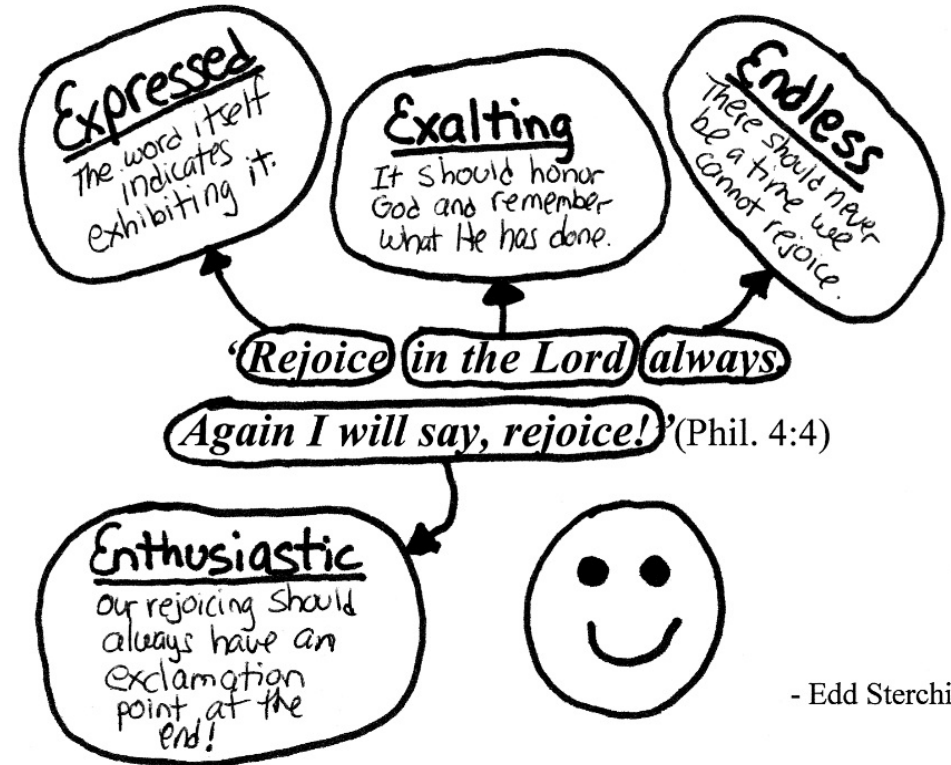 Expressed
The word itself
indicates
exhibiting it.
Exalting
It should honor
God and remember
what He has done.
Endless
There should never
be a time we
cannot rejoice.
“Rejoice in the Lord always.
Again I will say, rejoice!” (Phil. 4:4)
Enthusiastic
Our rejoicing should
always have an
exclamation
point at the
end!
- Edd Sterchi